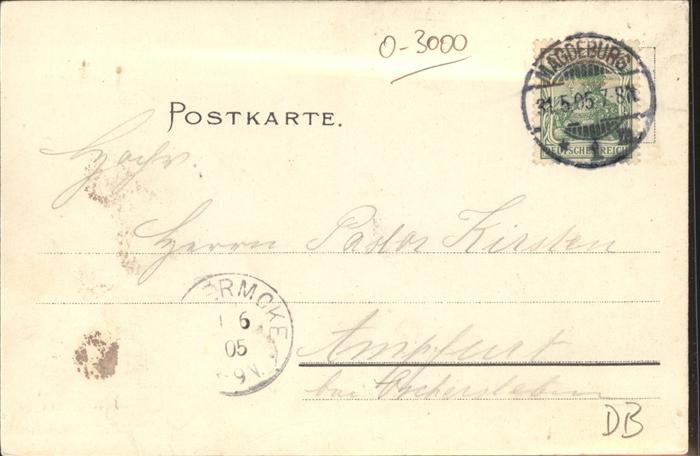 O-3000
MAGDEBURG
31.5.05.7-8N
* 1
DEUTSCHES REICH
POSTKARTE.
Hochw.
Herrn Pastor Kirsten
ORMCKE
1 6
05
-9V.
Ampfurt
bei Oschersleben
DB